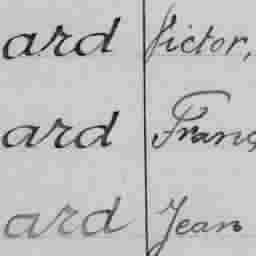 ard Victor,
ard Franç
ard Jean